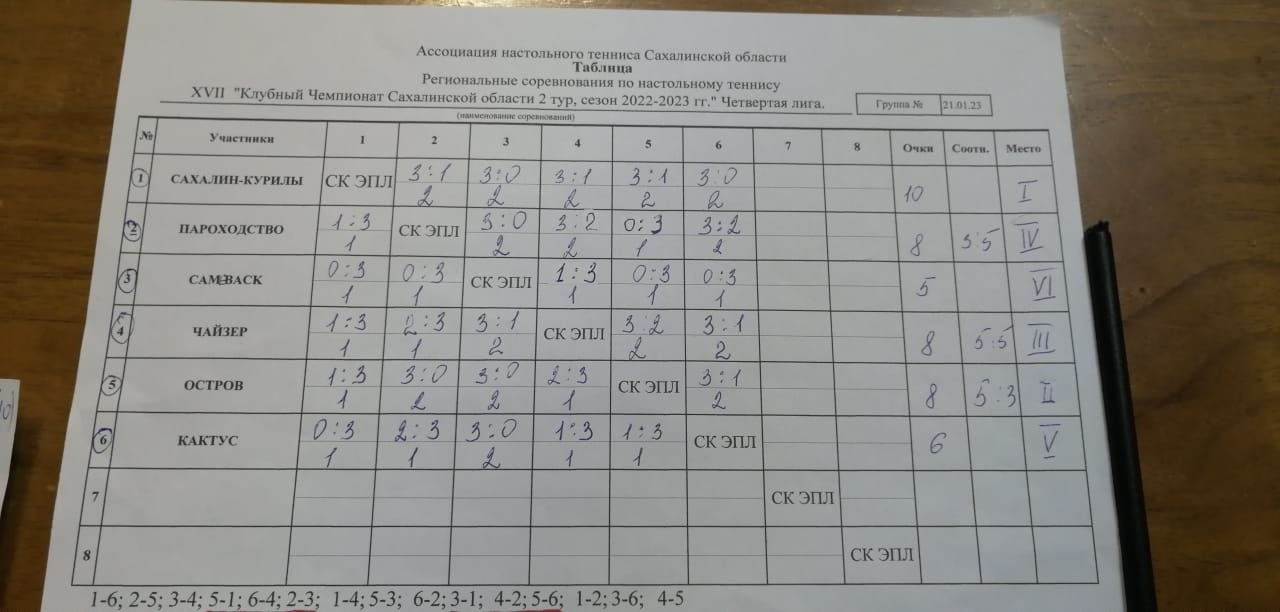 Ассоциация настольного тенниса Сахалинской области
Таблица
Региональные соревнования по настольному теннису
XVII "Клубный Чемпионат Сахалинской области 2 тур, сезон 2022-2023 гг." Четвертая лига.
Группа № 21.01.23
(наименование соревнований)
№ Участники 1 2 3 4 5 6 7 8 Очки Соотн. Место
1 САХАЛИН-КУРИЛЫ СК ЭПЛ 3:1 3:0 3:1 3:1 3:0 10 I
2 2 2 2 2
2 ПАРОХОДСТВО 1:3 СК ЭПЛ 3:0 3:2 0:3 3:2 8 3:5 IV
1 2 2 1 2
3 0:3 0:3 СК ЭПЛ 1:3 0:3 0:3 5 VI
1 1 1 1 1
4 ЧАЙЗЕР 1:3 2:3 3:1 СК ЭПЛ 3:2 3:1 8 5:5 III
1 1 2 2 2
5 ОСТРОВ 1:3 3:0 3:0 2:3 СК ЭПЛ 3:1 8 5:3 II
1 2 2 1 2
6 КАКТУС 0:3 2:3 3:0 1:3 1:3 СК ЭПЛ 6 V
1 1 2 1 1
7 СК ЭПЛ
8 СК ЭПЛ
1-6; 2-5; 3-4; 5-1; 6-4; 2-3; 1-4; 5-3; 6-2; 3-1; 4-2; 5-6; 1-2; 3-6; 4-5